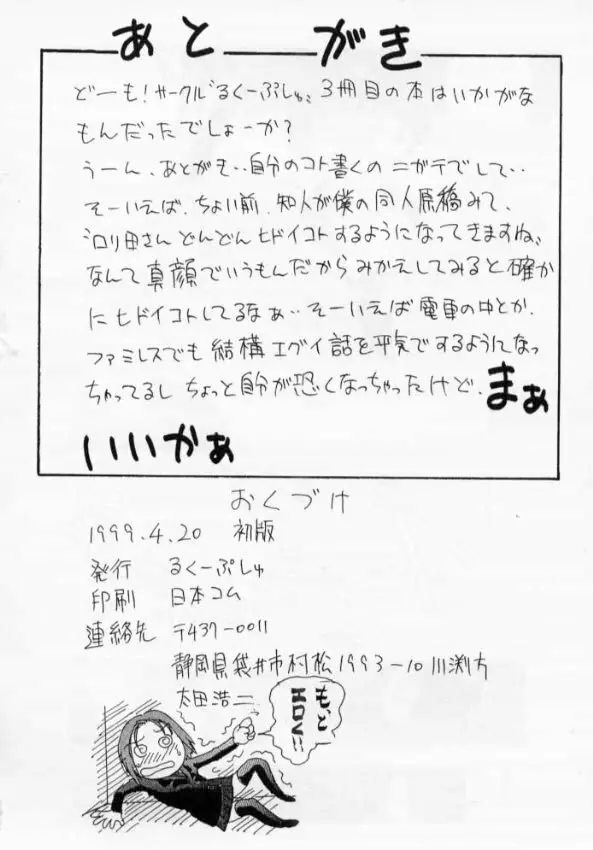 あとがき
どーも!サークル"るくーぷしゅ、3冊目の本はいかがな
もんだったでしょーか?
うーん、あとがき‥自分のコト書くのニガテでして‥
そーいえば、ちょい前、知人が僕の同人原稿みて、
ロリ田さんどんどんヒドイコトするようになってきますね、
なんて真顔でいうもんだからみかえしてみると確か
にヒドイコトしてるなぁ‥そーいえば電車の中とか、
ファミレスでも結構エグイ話を平気でするようになっ
ちゃってるしちょっと自分が恐くなっちゃったけど、まぁ
いいかぁ
おくづけ
1999.4.20 初版
発行 るくーぷしゅ
印刷 日本コム
連絡先 〒437-0011
静岡県袋井市村松1993-10川渕方
太田浩二
もっと
エロい!!